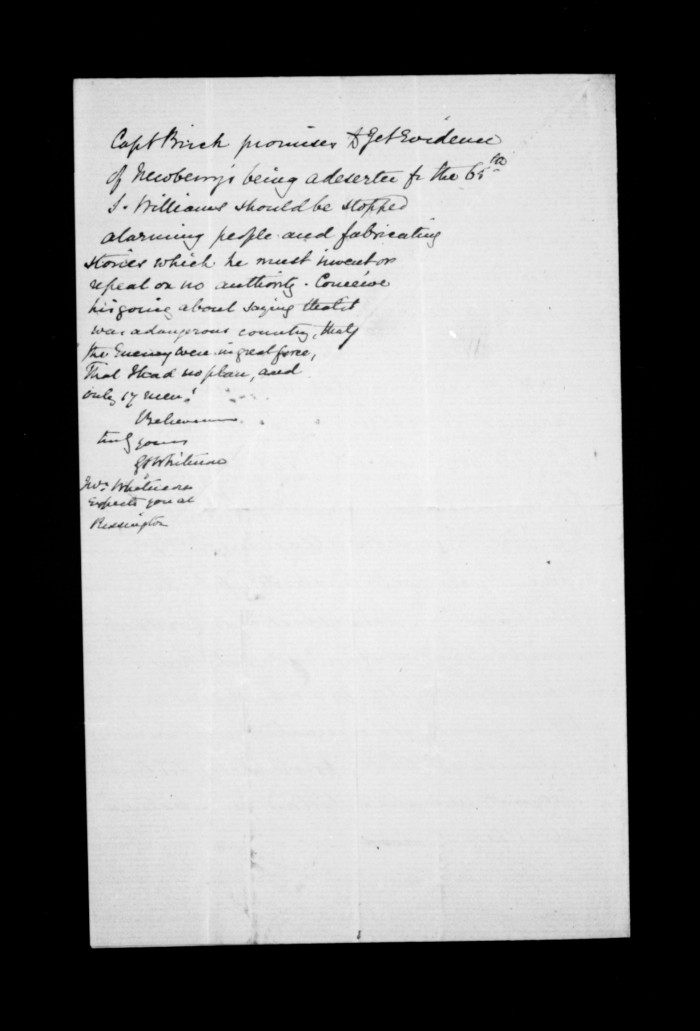 Capt Birch promises to get Evidence
of Newberry's being a deserter fr the 65th
S. Williams should be stopped
alarming people and fabricating
stories which he must invent or
repeat on no authority. Conceive
his going about saying that it
was a dangerous country, that
the Enemy were in great force,
that I had no plan, and
only 17 men!
Believe me
truly yours
GS Whitmore
Mrs Whitmore
Expects you at
Rissington